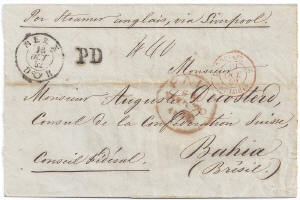 Per Steamer anglais, via Liverpool.
BERN
12
OCT
PD
Monsieur
Monsieur Auguste Decosterd
Consul de la Confédération Suisse,
Bahia
Conseil Fédéral
(Brésil)